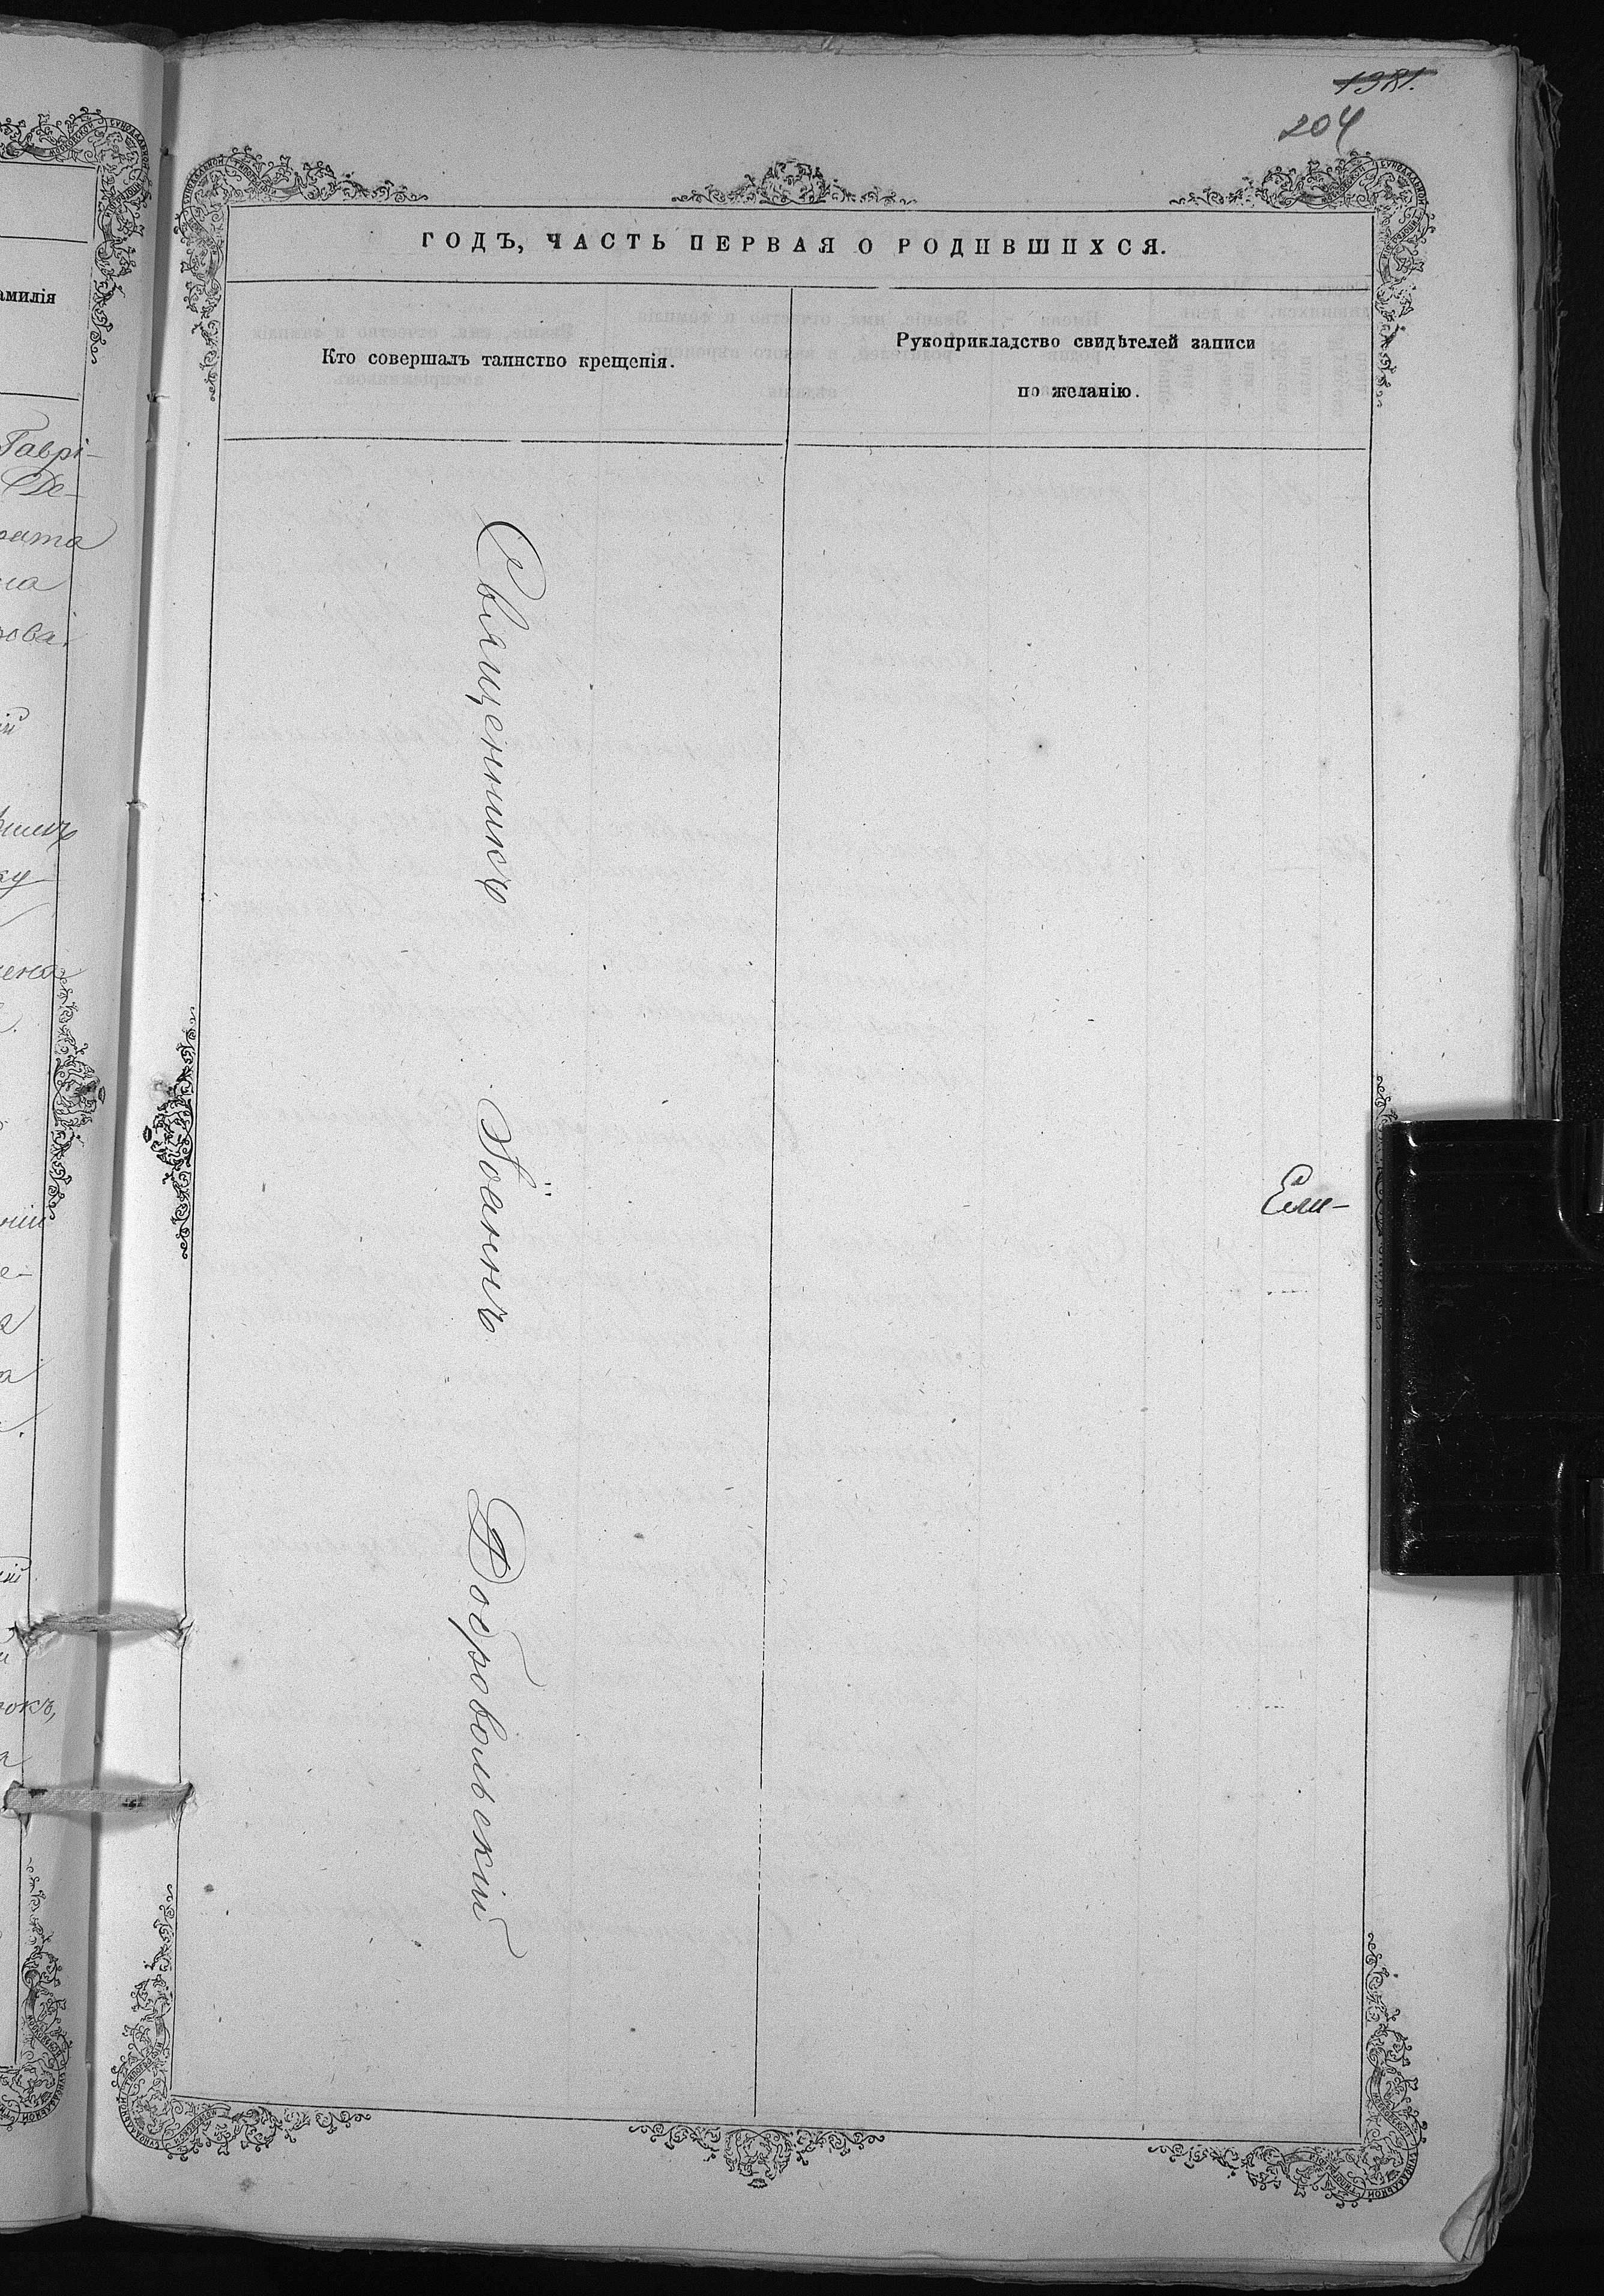 1381.
204
ГОДЪ, ЧАСТЬ ПЕРВАЯ О РОДИВШИХСЯ.
Кто совершалъ таинство крещенія.
Рукоприкладство свидѣтелей записи
по желанію.
Священникъ Іоаннъ Добровольскій
Ели-
амилія
Гаврі-
Де-
рата
на
рова.
ій
ку
а